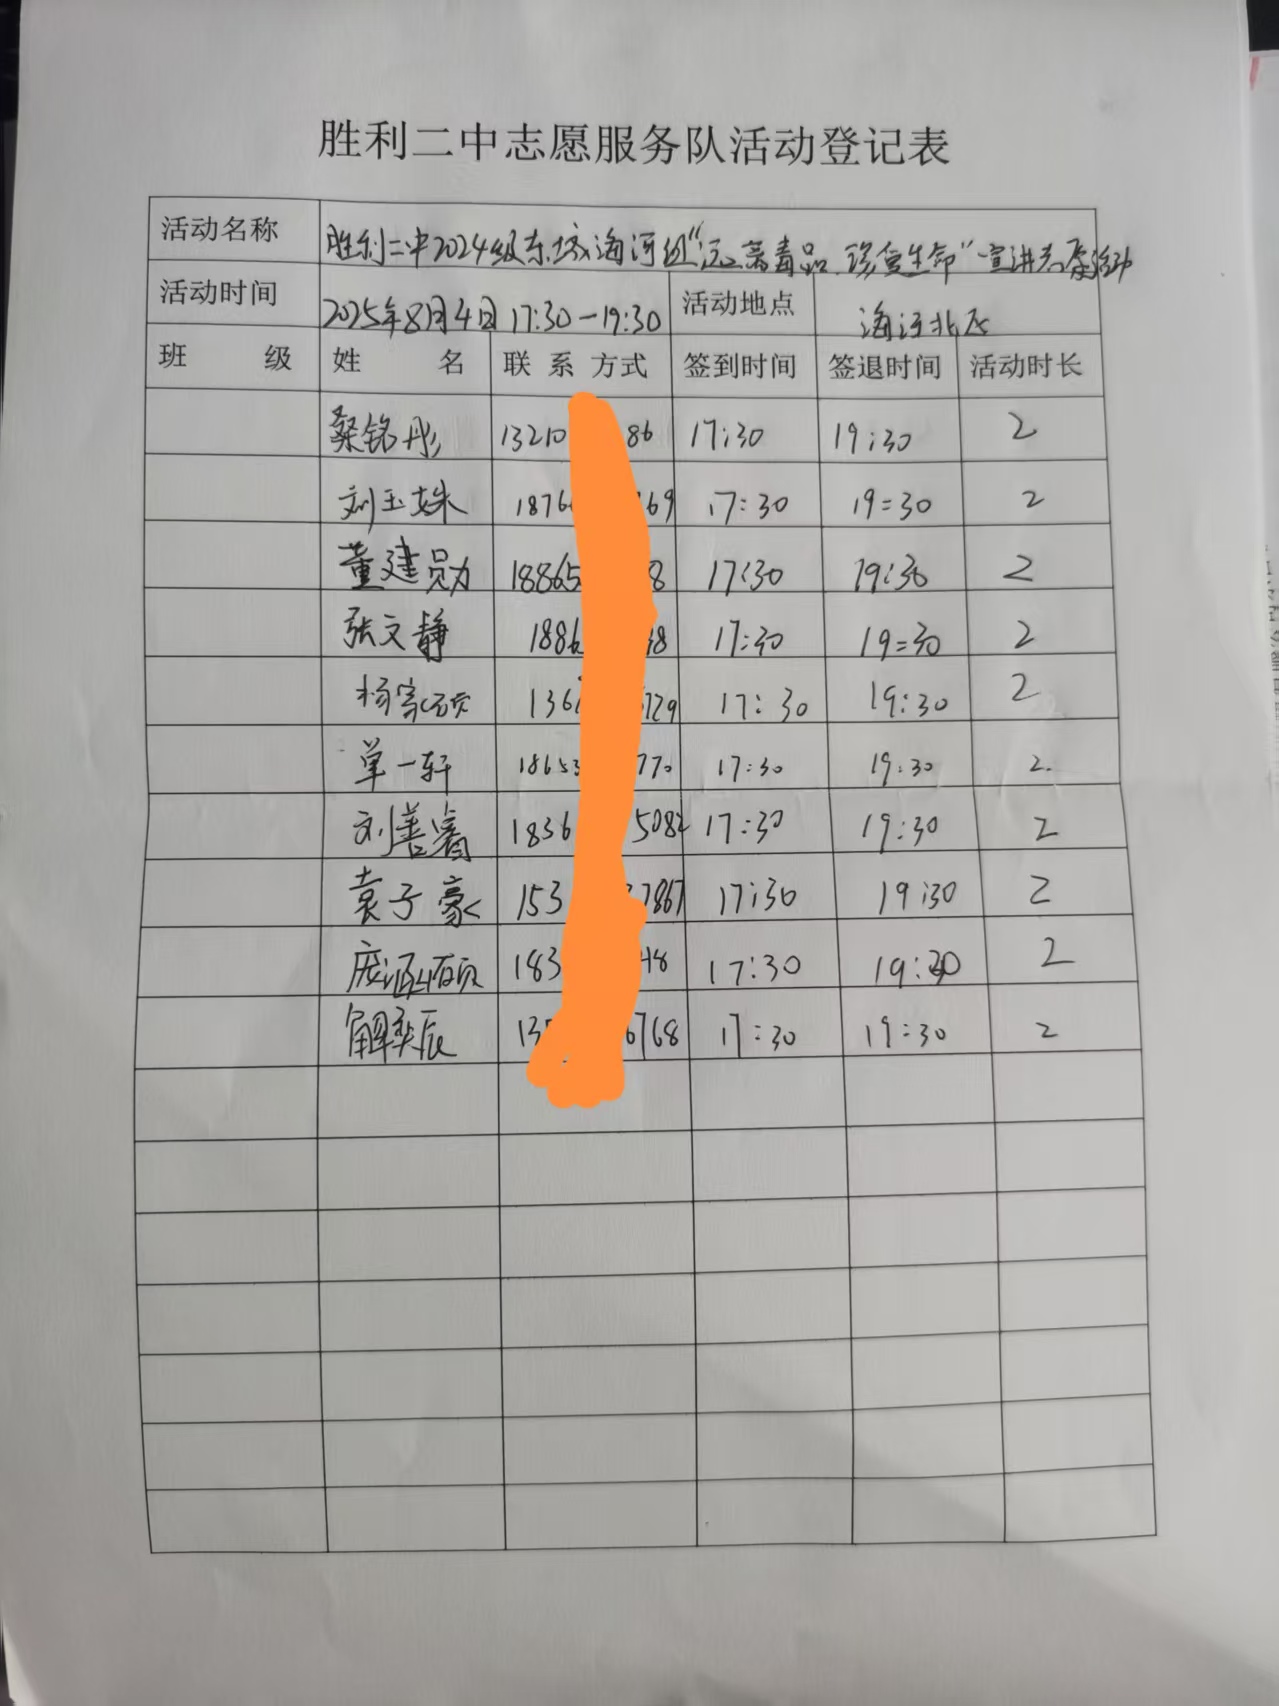 胜利二中志愿服务队活动登记表
活动名称 胜利二中2024级东城海河组“远离毒品 珍爱生命”宣讲志愿活动
活动时间 2025年8月4日 17:30-19:30 活动地点 海河北区
班 级 姓 名 联系方式 签到时间 签退时间 活动时长
桑铭彤 13210 86 17:30 19:30 2
刘玉姝 1876 69 17:30 19:30 2
董建勋 18865 8 17:30 19:30 2
张文静 1886 38 17:30 19:30 2
杨家硕 136 729 17:30 19:30 2
单一轩 18653 770 17:30 19:30 2
刘善睿 1836 5082 17:30 19:30 2
袁子豪 153 7867 17:30 19:30 2
庞涵硕 183 48 17:30 19:30 2
解奕辰 13 6768 17:30 19:30 2